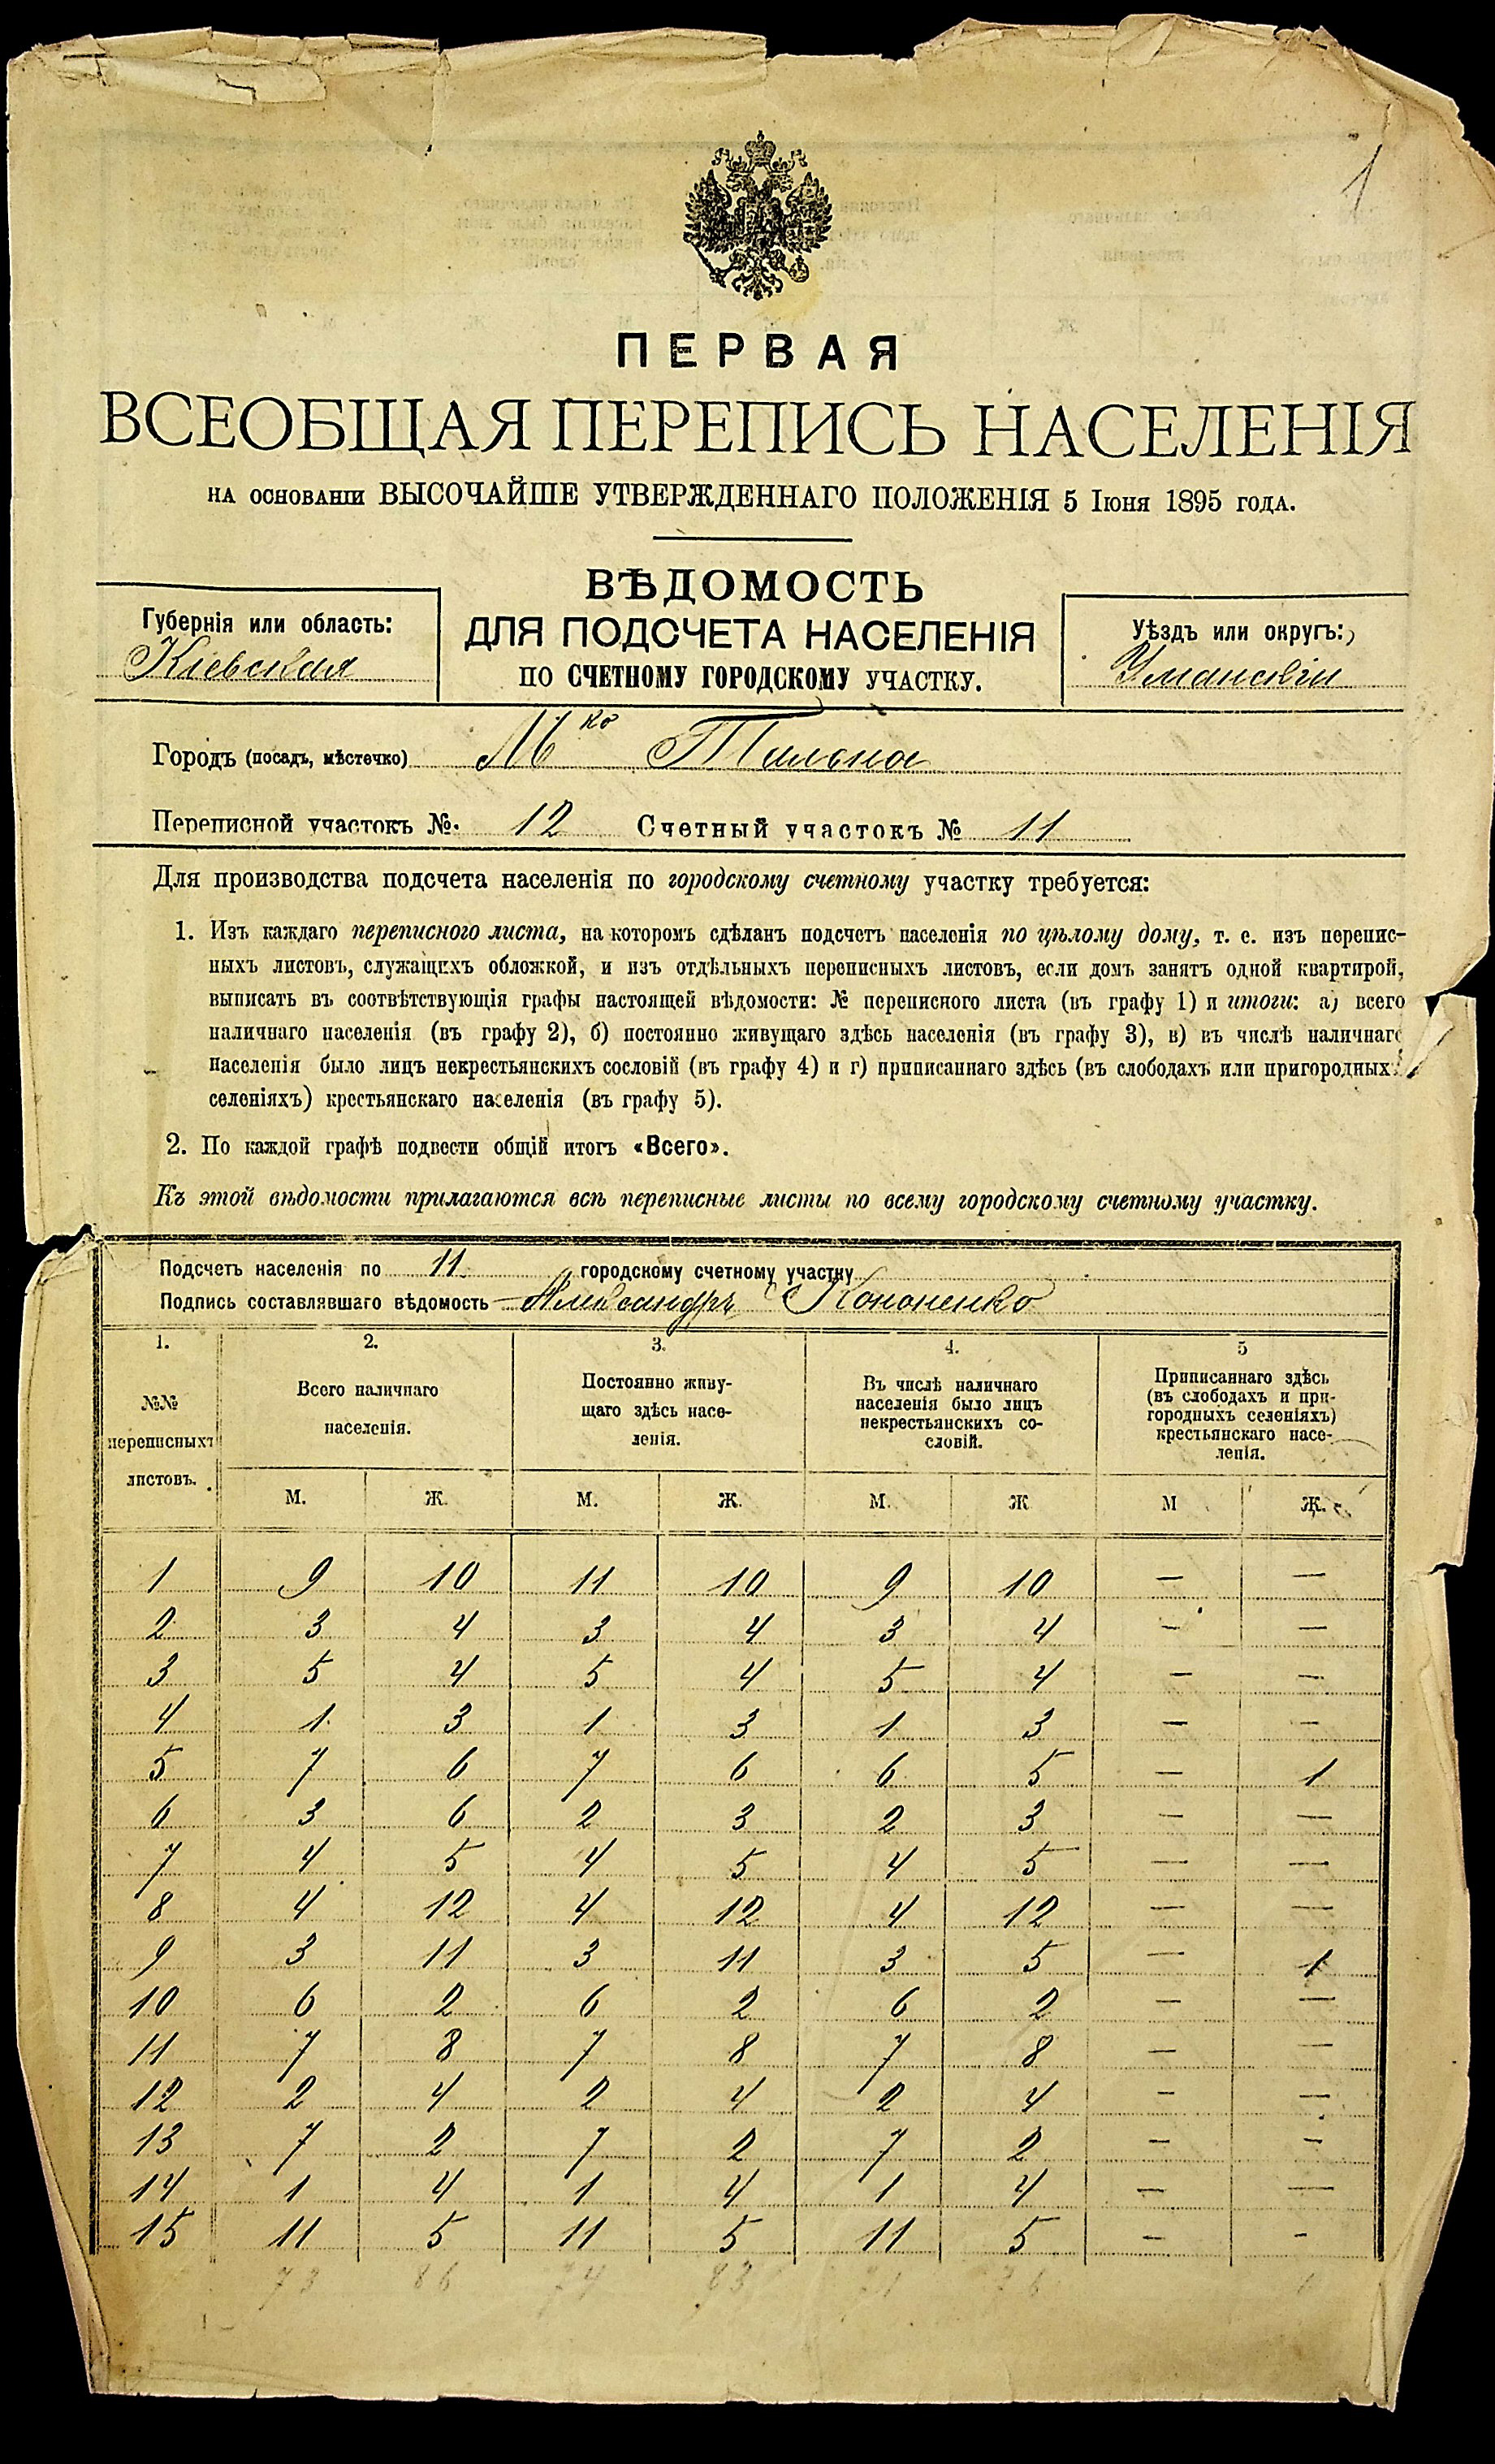 1
ПЕРВАЯ
ВСЕОБЩАЯ ПЕРЕПИСЬ НАСЕЛЕНІЯ
НА ОСНОВАНІИ ВЫСОЧАЙШЕ УТВЕРЖДЕННАГО ПОЛОЖЕНІЯ 5 ІЮНЯ 1895 ГОДА.
ВѢДОМОСТЬ
ДЛЯ ПОДСЧЕТА НАСЕЛЕНІЯ
ПО СЧЕТНОМУ ГОРОДСКОМУ УЧАСТКУ.
Губернія или область:
Кіевская
Уѣздъ или округъ:
Уманскій
Городъ (посадъ, мѣстечко) М ко Тальна
Переписной участокъ №. 12 Счетный участокъ № 11
Для производства подсчета населенія по городскому счетному участку требуется:
1. Изъ каждаго переписного листа, на которомъ сдѣланъ подсчетъ населенія по цѣлому дому, т. е. изъ перепис-
ныхъ листовъ, служащихъ обложкой, и изъ отдѣльныхъ переписныхъ листовъ, если домъ занятъ одной квартирой,
выписать въ соотвѣтствующія графы настоящей вѣдомости: № переписного листа (въ графу 1) и итоги: а) всего
наличнаго населенія (въ графу 2), б) постоянно живущаго здѣсь населенія (въ графу 3), в) въ числѣ наличнаго
населенія было лицъ некрестьянскихъ сословій (въ графу 4) и г) приписаннаго здѣсь (въ слободахъ или пригородныхъ
селеніяхъ) крестьянскаго населенія (въ графу 5).
2. По каждой графѣ подвести общій итогъ «Всего».
Къ этой вѣдомости прилагаются всѣ переписные листы по всему городскому счетному участку.
Подсчетъ населенія по 11 городскому счетному участку
Подпись составлявшаго вѣдомость Александръ Кононенко
1. 2. 3. 4. 5
№№
переписныхъ
листовъ.
Всего наличнаго
населенія.
Постоянно живу-
щаго здѣсь насе-
ленія.
Въ числѣ наличнаго
населенія было лицъ
некрестьянскихъ со-
словій.
Приписаннаго здѣсь
(въ слободахъ и при-
городныхъ селеніяхъ)
крестьянскаго насе-
ленія.
М. Ж. М. Ж. М. Ж М Ж.
1 9 10 11 10 9 10 — —
2 3 4 3 4 3 4 — —
3 5 4 5 4 5 4 — —
4 1 3 1 3 1 3 — —
5 7 6 7 6 6 5 — 1
6 3 6 2 3 2 3 — —
7 4 5 4 5 4 5 — —
8 4 12 4 12 4 12 — —
9 3 11 3 11 3 5 — 1
10 6 2 6 2 6 2 — —
11 7 8 7 8 7 8 — —
12 2 4 2 4 2 4 — —
13 7 2 7 2 7 2 — —
14 1 4 1 4 1 4 — —
15 11 5 11 5 11 5 — -
73 86 74 83 71 76